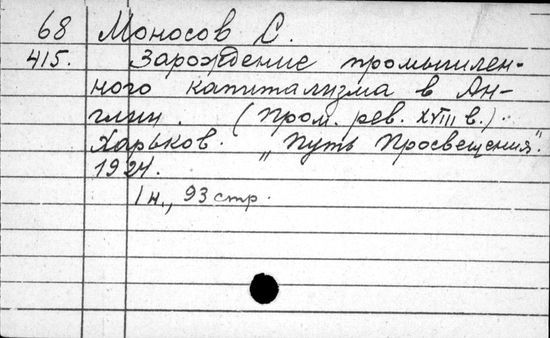 68 Моносов С.
415. Зарождение промышлен-
ного капитализма в Ан-
глии. (Пром. рев. XVIII в.)
Харьков. „Путь Просвещения".
1924.
1 н., 93 стр.